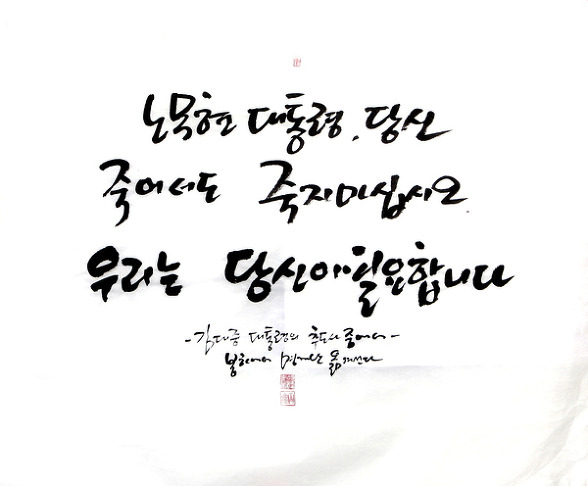 노무현 대통령. 당신
죽어서도 죽지마십시오.
우리는 당신이 필요합니다
-김대중 대통령의 추도사 중에서-
봉하에서